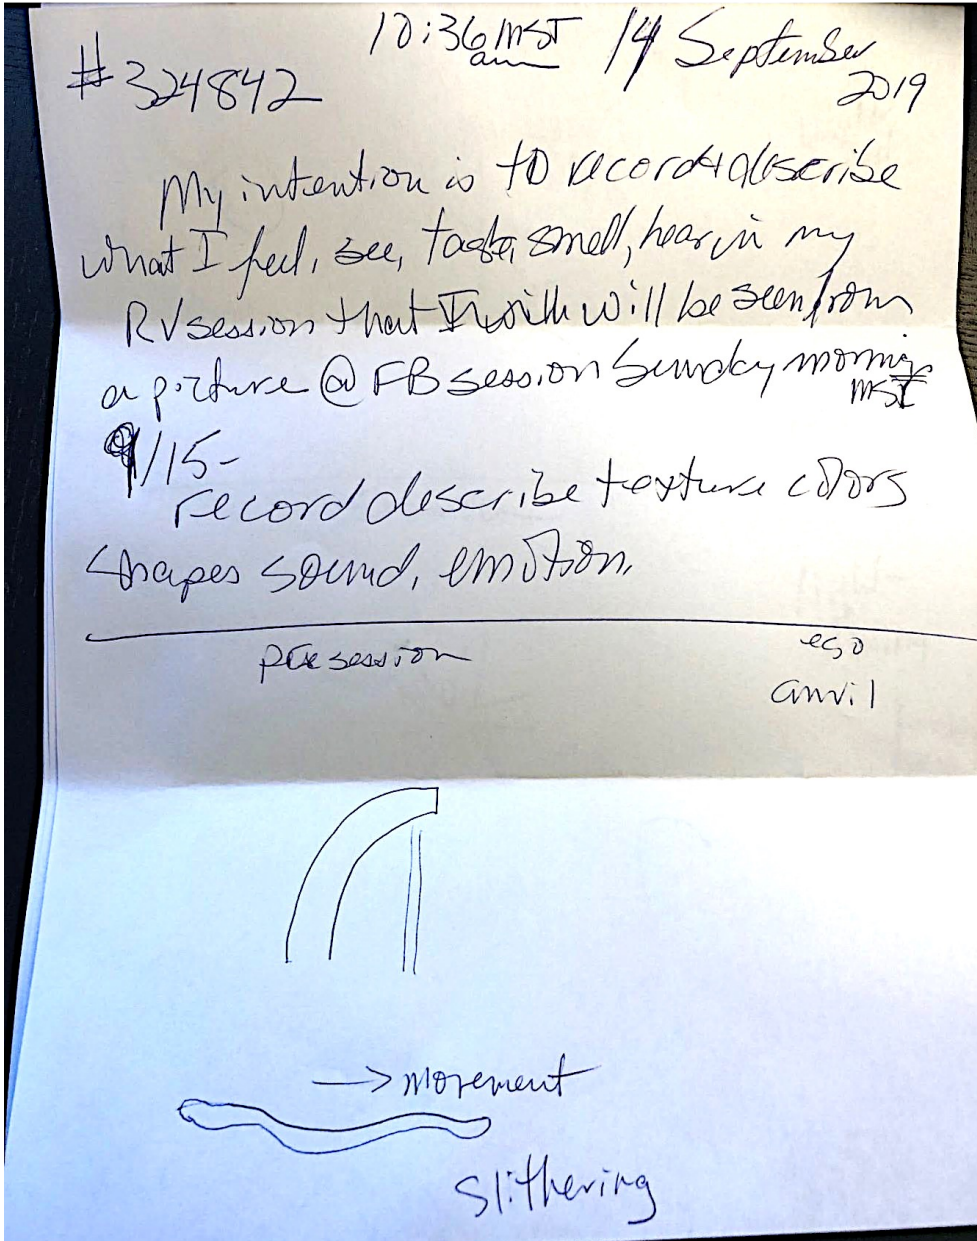 10:36 am MST 14 September
#324842 2019
My intention is to record & describe
what I feel, see, taste, smell, hear, in my
RV session that I will be seen from
a picture @ FB session Sunday morning
MST
9/15-
record describe texture colors
shapes sound, emotion.
pre session ego
anvil
→ movement
slithering